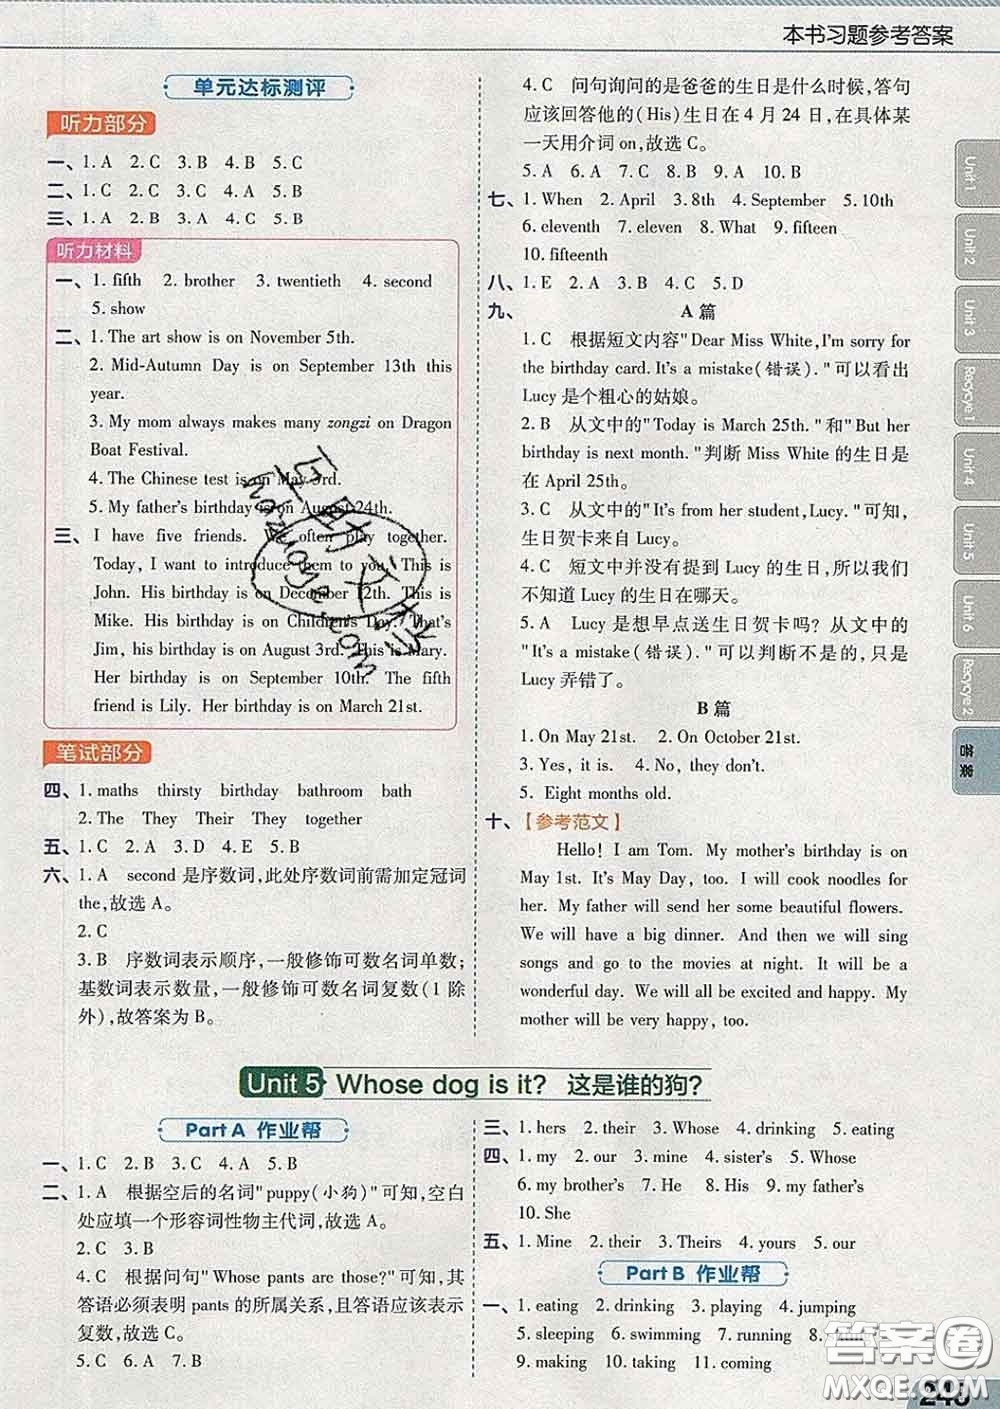 本书习题参考答案
单元达标测评
听力部分
一、1. A 2. C 3. B 4. B 5. C
二、1. C 2. B 3. C 4. A 5. B
三、1. A 2. B 3. A 4. C 5. B
听力材料
一、1. fifth 2. brother 3. twentieth 4. second
5. show
二、1. The art show is on November 5th.
2. Mid-Autumn Day is on September 13th this
year.
3. My mom always makes many zongzi on Dragon
Boat Festival.
4. The Chinese test is on May 3rd.
5. My father's birthday is on August 24th.
三、I have five friends. We often play together.
Today, I want to introduce them to you. This is
John. His birthday is on December 12th. This is
Mike. His birthday is on Children's Day. That's
Jim, his birthday is on August 3rd. This is Mary.
Her birthday is on September 10th. The fifth
friend is Lily. Her birthday is on March 21st.
笔试部分
四、1. maths thirsty birthday bathroom bath
2. The They Their They together
五、1. C 2. A 3. D 4. E 5. B
六、1. A second 是序数词,此处序数词前需加定冠词
the,故选 A。
2. C
3. B 序数词表示顺序,一般修饰可数名词单数;
基数词表示数量,一般修饰可数名词复数(1 除
外),故答案为 B。
4. C 问句询问的是爸爸的生日是什么时候,答句
应该回答他的(His)生日在 4 月 24 日,在具体某
一天用介词 on,故选 C。
5. A 6. A 7. C 8. B 9. A 10. B
七、1. When 2. April 3. 8th 4. September 5. 10th
6. eleventh 7. eleven 8. What 9. fifteen
10. fifteenth
八、1. E 2. A 3. B 4. C 5. D
九、A 篇
1. C 根据短文内容"Dear Miss White,I'm sorry for
the birthday card. It's a mistake(错误)."可以看出
Lucy 是个粗心的姑娘。
2. B 从文中的"Today is March 25th."和"But her
birthday is next month."判断 Miss White 的生日是
在 April 25th。
3. C 从文中的"It's from her student,Lucy."可知,
生日贺卡来自 Lucy。
4. C 短文中并没有提到 Lucy 的生日,所以我们
不知道 Lucy 的生日在哪天。
5. A Lucy 是想早点送生日贺卡吗? 从文中的
"It's a mistake(错误)."可以判断不是的,只是
Lucy 弄错了。
B 篇
1. On May 21st. 2. On October 21st.
3. Yes, it is. 4. No, they don't.
5. Eight months old.
十、【参考范文】
Hello! I am Tom. My mother's birthday is on
May 1st. It's May Day, too. I will cook noodles for
her. My father will send her some beautiful flowers.
We will have a big dinner. And then we will sing
songs and go to the movies at night. It will be a
wonderful day. We will all be excited and happy. My
mother will be very happy, too.
Unit 5 Whose dog is it? 这是谁的狗?
Part A 作业帮
一、1. C 2. B 3. C 4. A 5. B
二、1. A 根据空后的名词"puppy(小狗)"可知,空白
处应填一个形容词性物主代词,故选 A。
2. C 3. B
4. C 根据问句"Whose pants are those?"可知,其
答语必须表明 pants 的所属关系,且答语应该表示
复数,故选 C。
5. C 6. A 7. B
三、1. hers 2. their 3. Whose 4. drinking 5. eating
四、1. my 2. our 3. mine 4. sister's 5. Whose
6. my brother's 7. He 8. His 9. my father's
10. She
五、1. Mine 2. their 3. Theirs 4. yours 5. our
Part B 作业帮
一、1. eating 2. drinking 3. playing 4. jumping
5. sleeping 6. swimming 7. running
9. making 10. taking 11. coming
Unit 1
Unit 2
Unit 3
Recycye 1
Unit 4
Unit 5
Unit 6
Recycye 2
答案
答案圈
MXQE.COM
hazuoye.com